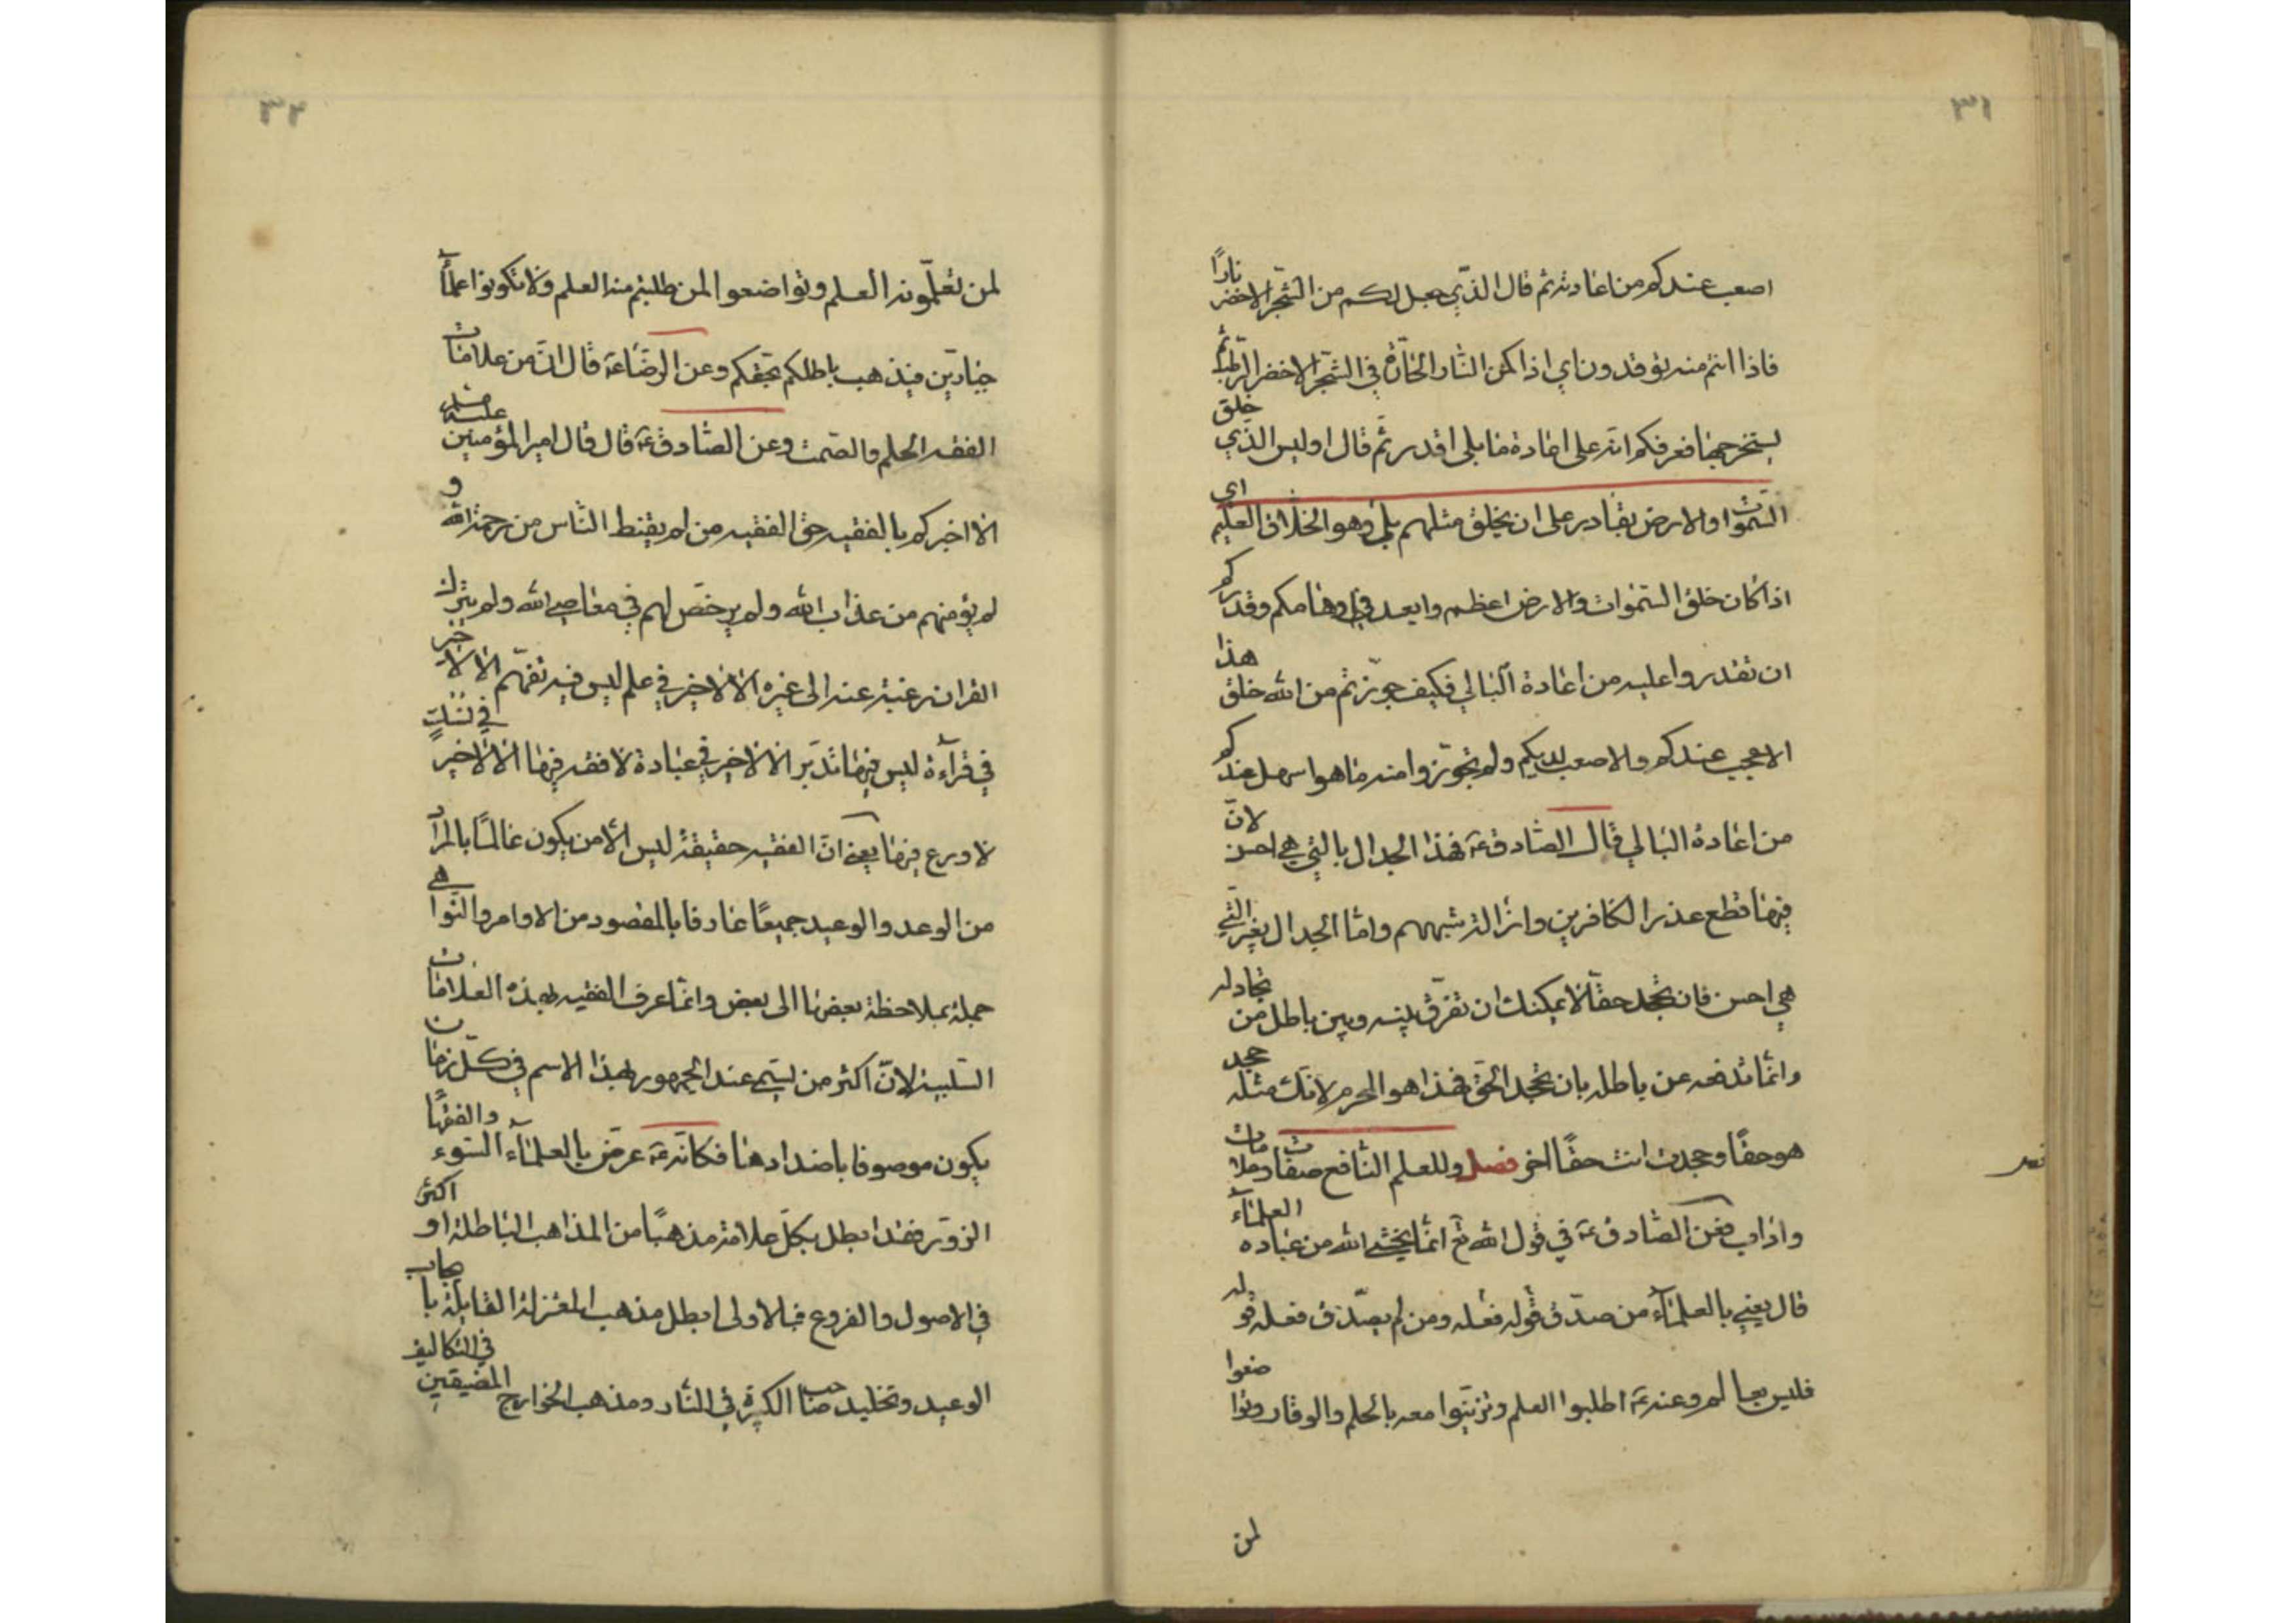 ٣١
اصعب عندكم من اعادته ثم قال الذي جعل لكم من الشجر الاخضر نارًا
فاذا انتم منه توقدون اي اذا اكمن النار الحارة في الشجر الاخضر الرطب ثم
يستخرجها فعرفكم انه على اعادة ما بلى اقدر ثم قال اوليس الذي خلق
السموات والارض بقادر على ان يخلق مثلهم بلى وهو الخلاق العليم اي
اذا كان خلق السموات والارض اعظم وابعد في اوهامكم وقدركم
ان تقدروا عليه من اعادة البالي فكيف جوزتم من الله خلق هذا
الاعجب عندكم والاصعب لديكم ولم تجوزوا منه ما هو اسهل عندكم
من اعادة البالي قال الصادق ع فهذا الجدال بالتي هي احسن لانّ
فيها قطع عذر الكافرين وازالة شبههم واما الجدال بغير التي
هي احسن فان تجحد حقّا لا يمكنك ان تفرّق بينه وبين باطل من تجادله
وانّما تدفعه عن باطله بان تجحد الحق فهذا هو المحرم لانّك مثله جحد
هو حقّا وجحدت انت حقّا اخر فصل وللعلم النافع صفات وعلامات
واداب فعن الصادق ع في قول الله تع انّما يخشى الله من عباده العلماء
قال يعني بالعلماء من صدّق قوله فعله ومن لم يصدّق فعله قوله
فليس بعالم وعنه ع اطلبوا العلم وتزيّنوا معه بالحلم والوقار وتواضعوا
لمن
٣٢
لمن تعلّمونه العلم وتواضعوا لمن طلبتم منه العلم ولا تكونوا علماء
جبارين فيذهب باطلكم بحقكم وعن الرضا ع قال انّ من علامات
الفقه الحلم والصمت وعن الصادق ع قال قال امير المؤمنين
الا اخبركم بالفقيه حق الفقيه من لم يقنط الناس من رحمة الله و
لم يؤمنهم من عذاب الله ولم يرخّص لهم في معاصي الله ولم يترك
القران رغبة عنه الى غيره الا لا خير في علم ليس فيه تفهّم الا لا خير
في قراءة ليس فيها تدبّر الا لا خير في عبادة لا فقه فيها الا لا خير في نسك
لا ورع فيها يعني انّ الفقيه حقيقة ليس الّا من يكون عالمًا بالمراد
من الوعد والوعيد جميعًا عارفا بالمقصود من الاوامر والنواهي
جملة بملاحظة بعضها الى بعض وانّما عرف الفقيه بهذه العلامات
السلبية لانّ اكثر من يسمى عند الجمهور بهذا الاسم في كلّ زمان
يكون موصوفا باضدادها فكانّه ع عرّض بالعلماء السوء والفقهاء
الزور فقد ابطل بكلّ علامة مذهبًا من المذاهب الباطلة او اكثر
في الاصول والفروع فبالاولى ابطل مذهب المعتزلة القايلة بايجاب
الوعيد وتخليد صاحب الكبيرة في النار ومذهب الخوارج المضيقين في التكاليف